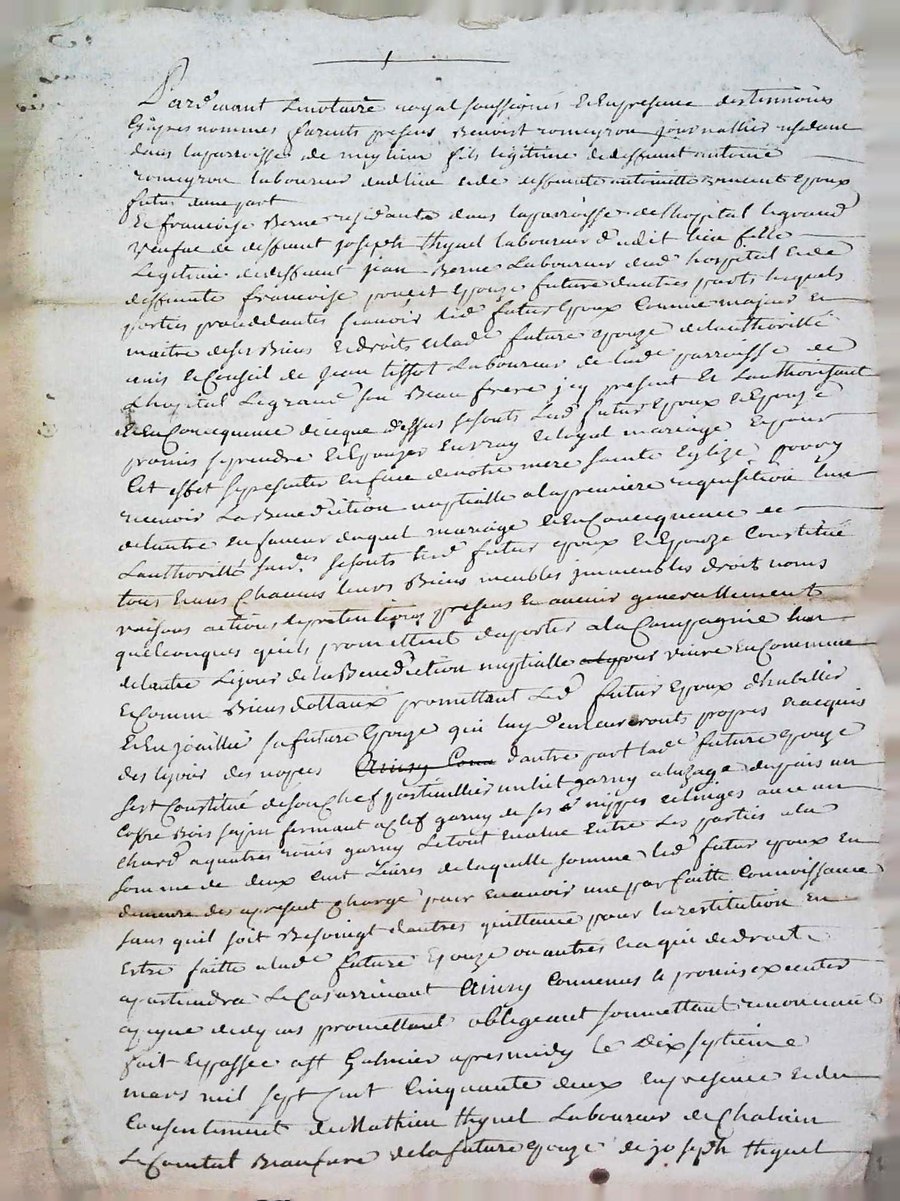 Pard'avant Lenotaire royal soussigné & Enpresence destemoins
Cyapres nommes furents presens Benoist romeyron journallier residant
dans laparroisse de meylieu fils légitime dedeffunt antoine
romeyron laboureur dudlieu & de deffunte antoinette Epoux
futur dune part
Et francoise Berne residante dans laparroisse delhopital legrand
veufue de deffunt joseph thynel laboureur dudit lieu fille
Legitime dedeffunt jean Berne Laboureur dud hospital & de
deffunte francoise ponçet Epouze future dautres parts lesquels
parties proceddantes scavoir led futur Epoux Comme majeur &
maitre deses Biens & droits & lade future epouze delauthorité
avis & Conseil de jean tissot Laboureur de lade parroisse de
Lhopital Legrand son Beaufrere jcy present & Lauthorisant
& En Concequence dece que dessus sesonts Led futur Epoux & Epouze
promis seprendre & Epouzer en vray & loyal mariage & pour
Cet effet sepresenter Enface denotre mere sainte Eglize pour y
recevoir La Benediction nuptialle alapremiere requisition lun
delautre enfaveur duquel mariage & En Concequence de
Lauthorité susd. sesonts led futur epoux & Epouze Constitué
tous & uns Chacuns leurs Biens meubles immeubles droit noms
raisons actions & pretentions presens & avenir generallement
quelconques quils promettent daporter ala Compagnie lun
delautre Lejour dela Benediction nuptialle pour vivre En Commun
& Comme Biens dottaux promettant Led futur Epoux dhabiller
& En joailler safuture Epouze qui luy demeureronts propres & acquis
des lejour des nopces dautre part lade future epouze
sest Constitué deson Chef particullier un lit garny a luzage dupais un
Coffre Bois sapin fermant a clef garny de ses nippes & linges avec un
Chard a quatres roues garny Letout Evalué Entre Les parties ala
somme de deux Cent Livres delaquelle somme led futur epoux en
demeure des apresent chargé pour En avoir une parfaitte Connoissance
sans quil soit Besoingt dautres quittance pour larestitution en
Estre faitte alade future Epouze ou autres & a qui dedroit
apartiendra Le Cas arrivant Ainsy Convenus & promis executer
apeyne dedepens promettant obligeant soumettant renoncant
fait & passée a st Galmier apresmidy le Dix septieme
mars mil sept Cent Cinquante deux en presence & du
Consentement de Mathieu thynel Laboureur de Chalain
Le Comtal Beaufrere dela future epouze de joseph thynel